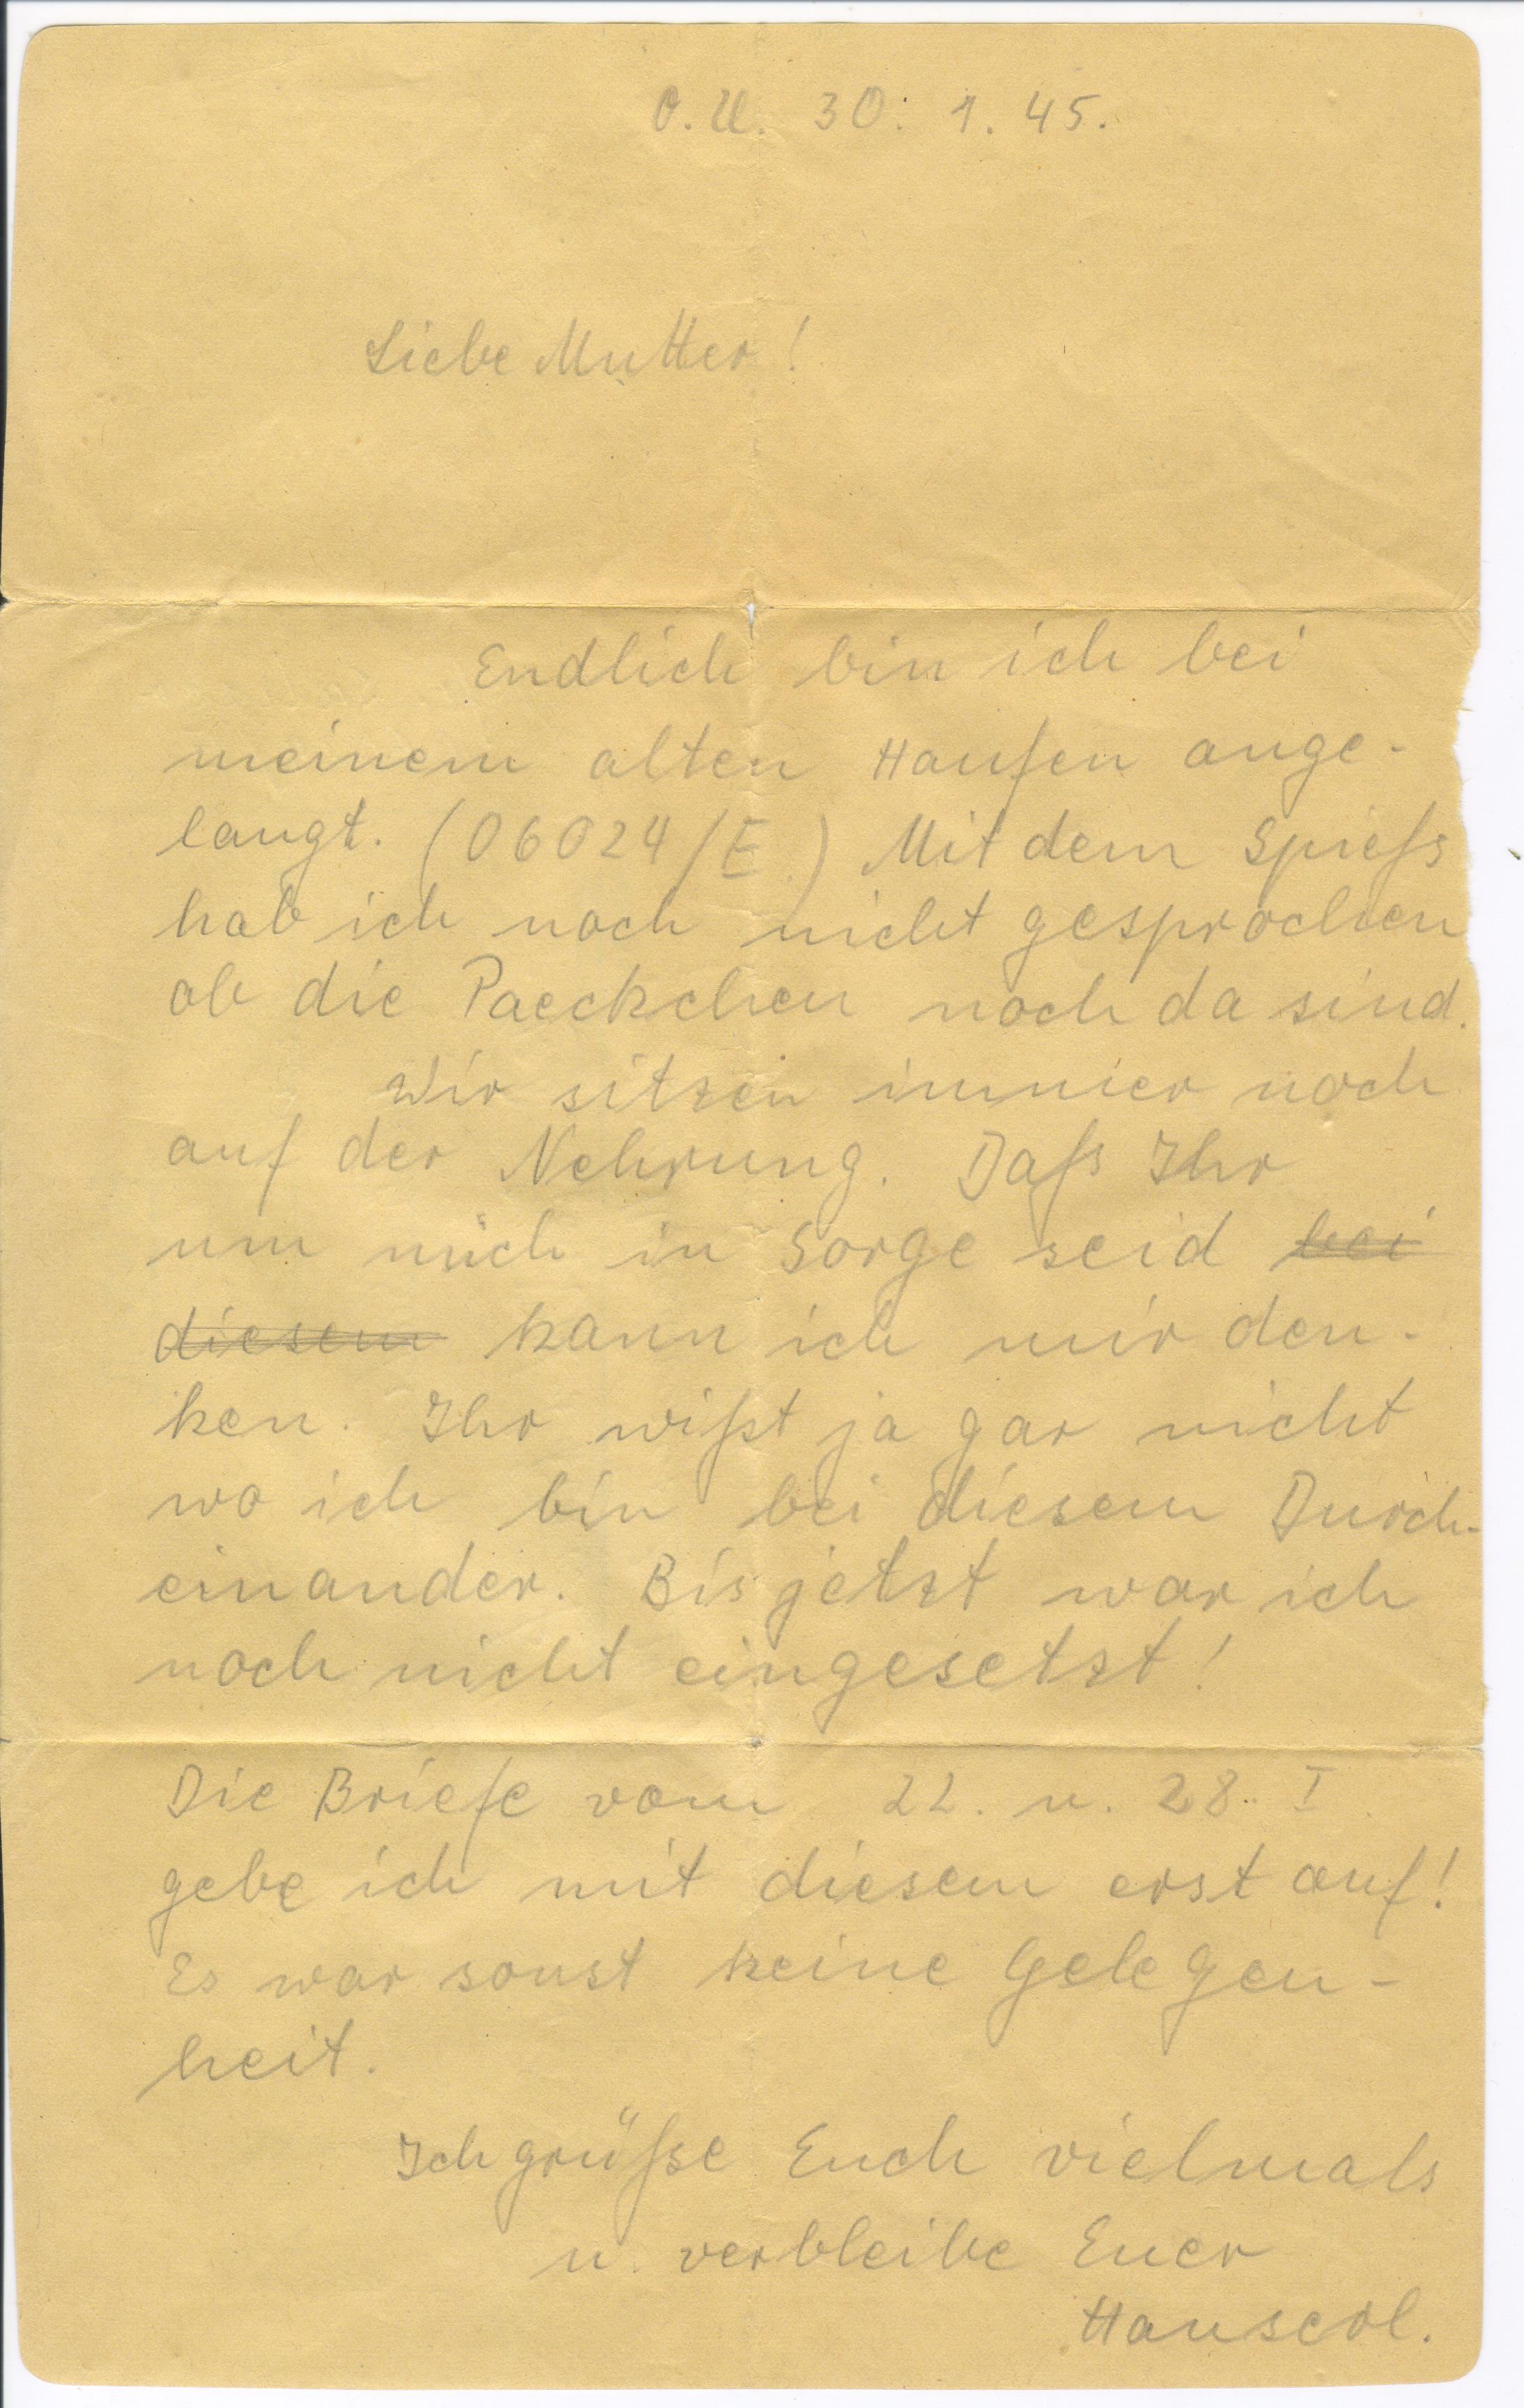 O.U. 30. 1. 45.
Liebe Mutter!
Endlich bin ich bei
meinem alten Haufen ange-
langt. (06024/E.) Mit dem Spieß
hab ich noch nicht gesprochen
ob die Paeckchen noch da sind.
Wir sitzen immer noch
auf der Nehrung. Daß Ihr
um mich in Sorge seid bei
diesem kann ich mir den-
ken. Ihr wißt ja gar nicht
wo ich bin bei diesem Durch-
einander. Bis jetzt war ich
noch nicht eingesetzt!
Die Briefe vom 22. u. 28. I.
gebe ich mit diesem erst auf!
Es war sonst keine Gelegen-
heit.
Ich grüße Euch vielmals
u. verbleibe Euer
Hanserl.